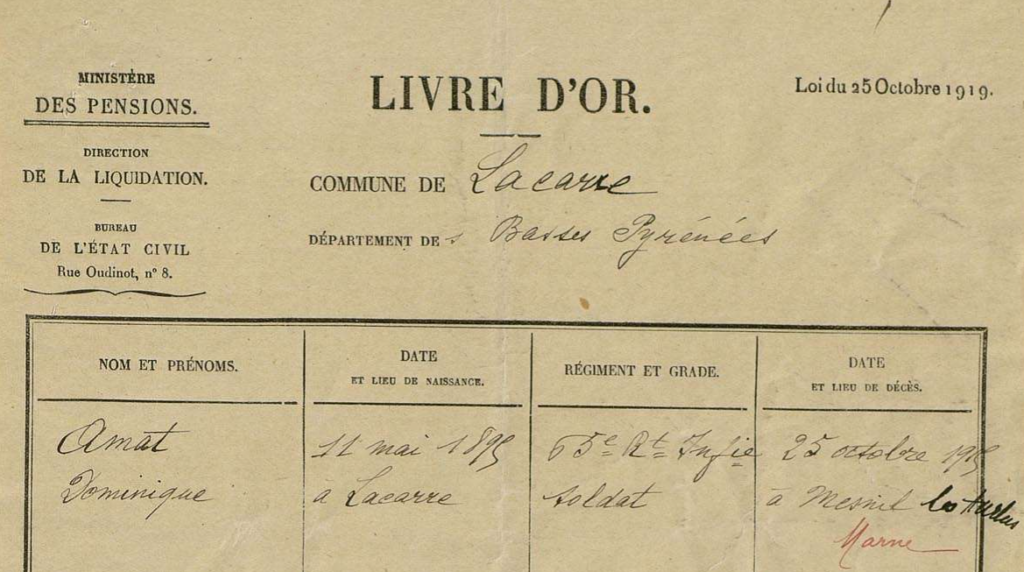 MINISTÈRE
DES PENSIONS.
DIRECTION
DE LA LIQUIDATION.
BUREAU
DE L'ÉTAT CIVIL
Rue Oudinot, n° 8.
LIVRE D'OR.
Loi du 25 Octobre 1919.
COMMUNE DE Lacarre
DÉPARTEMENT DE s Basses Pyrénées
NOM ET PRÉNOMS.
DATE
ET LIEU DE NAISSANCE.
RÉGIMENT ET GRADE.
DATE
ET LIEU DE DÉCÈS.
Amat
Dominique
11 mai 1895
à Lacarre
65e Rt Infie
soldat
25 octobre 1915
à Mesnil les Hurlus
Marne